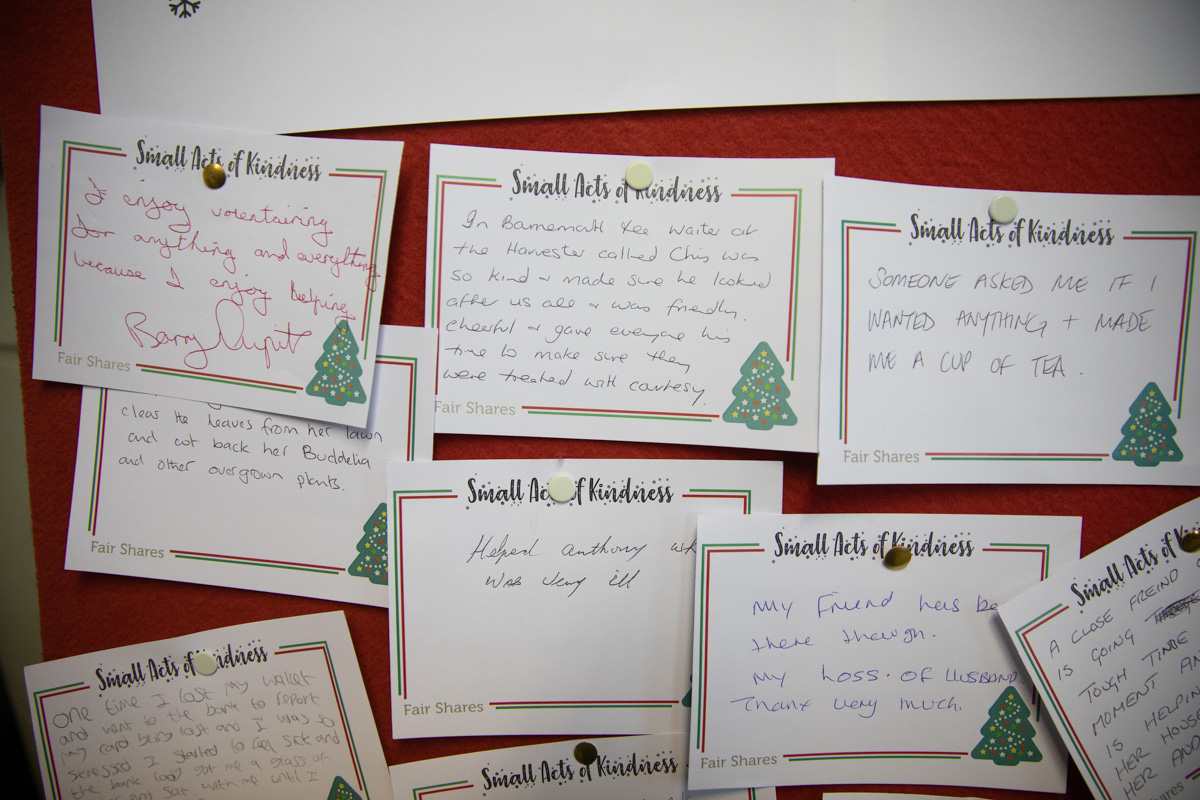 Small Acts of Kindness
I enjoy volentairing
for anything and everything
because I enjoy helping
Barry
Fair Shares
Small Acts of Kindness
In the waiter at
the Harvester called Chris was
so kind & made sure he looked
after us all & was friendly.
cheerful & gave everyone his
time to make sure they
were treated with courtesy.
Fair Shares
Small Acts of Kindness
SOMEONE ASKED ME IF I
WANTED ANYTHING + MADE
ME A CUP OF TEA.
Fair Shares
clear the leaves from her lawn
and cut back her Buddelia
and other overgrown plants.
Fair Shares
Small Acts of Kindness
Helped anthony
was very ill
Fair Shares
Small Acts of Kindness
My Friend has be
there though.
my Loss. OF HUSBAND.
Thanx very much.
Fair Shares
Small Acts of K
A CLOSE FREIND
IS GOING
TOUGH TIME
MOMENT AN
IS HELPIN
HER HOUS
HER AND
Shares
Small Acts of Kindness
one time I lost my wallet
and went to the bank to report
my card being lost and I was so
stressed I started to feel sick and
the bank lady got me a glass of
and sat with me until I
Small Acts of Kindness